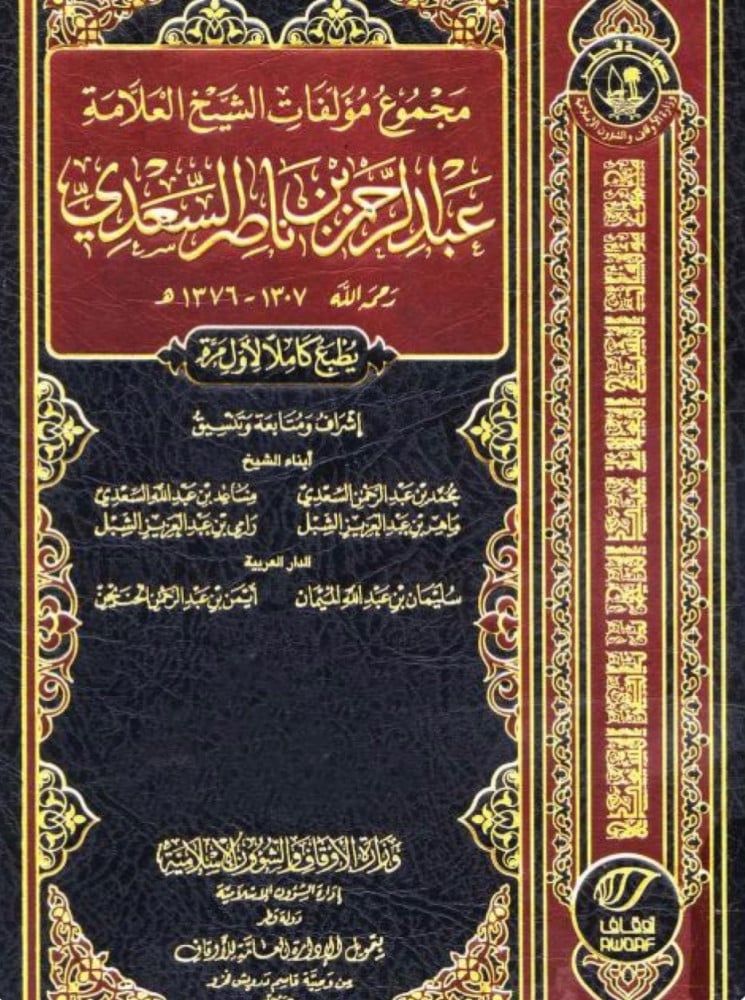 مجموع مؤلفات الشيخ العلامة
عبد الرحمن بن ناصر السعدي
رحمه الله ١٣٠٧ - ١٣٧٦ هـ
يطبع كاملاً لأول مرة
إشراف ومتابعة وتنسيق
أبناء الشيخ
محمد بن عبد الرحمن السعدي مساعد بن عبد الله السعدي
ماهر بن عبد العزيز الشبل رامي بن عبد العزيز الشبل
الدار العربية
سليمان بن عبد الله الميمان أيمن بن عبد الرحمن الحنيحن
وزارة الأوقاف والشؤون الإسلامية
إدارة الشؤون الإسلامية
دولة قطر
بتمويل الإدارة العامة للأوقاف
من وصية قاسم درويش فخرو
دولة قطر
وزارة الأوقاف والشؤون الإسلامية
أوقاف
AWQAF